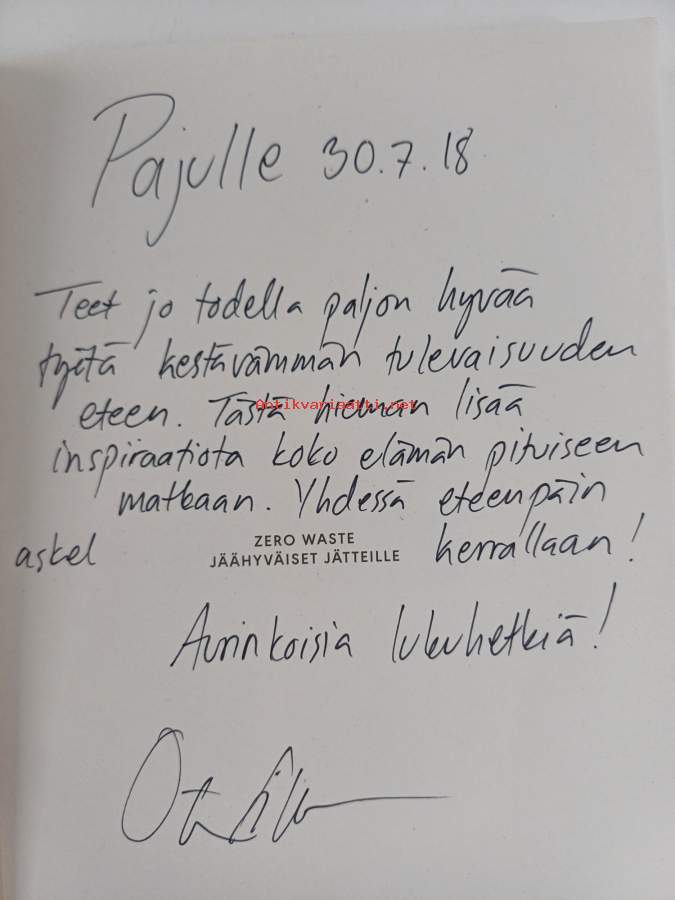 Pajulle 30.7.18
Teet jo todella paljon hyvää
työtä kestävämmän tulevaisuuden
eteen. Tästä hieman lisää
Antikvarisatti.net
inspiraatiota koko elämän pituiseen
matkaan. Yhdessä eteenpäin
askel kerrallaan!
ZERO WASTE
JÄÄHYVÄISET JÄTTEILLE
Aurinkoisia lukuhetkiä!